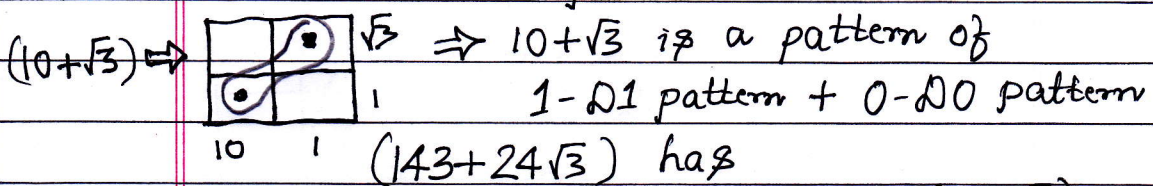 (10+√3) ⇒ √3 ⇒ 10+√3 is a pattern of
1 1-D1 pattern + 0-D0 pattern
10 1 (143+24√3) has